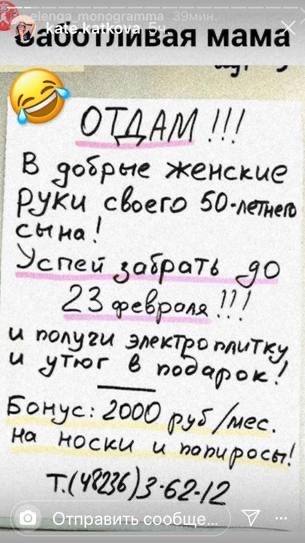 elenga_monogramma 39мин.
kate.katkova 5ч
Заботливая мама
ОТДАМ!!!
В добрые женские
руки своего 50-летнего
сына!
Успей забрать до
23 февраля!!!
и получи электроплитку
и утюг в подарок!
Бонус: 2000 руб/мес.
на носки и папиросы!
Т.(48236)3-62-12
Отправить сообще...